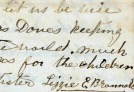 let us be wise
as Doves keeping
the world, much
es for the children
ister Lizzie E Brannoc